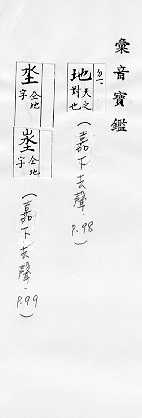 彙音寶鑑
地 天之對也 (嘉下去聲 P.98)
坔 仝地字
埊 仝地字 (嘉下去聲. P.99)